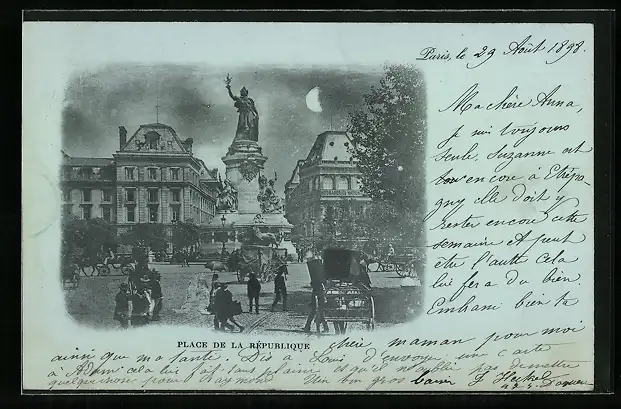 Paris, le 29 Août 1898.
Ma chère Anna,
je suis toujours
seule, Suzanne est
encore à Etrépa-
gny elle doit y
rester encore cette
semaine et peut
être l'autre cela
lui fera du bien.
Embrasse bien ta
PLACE DE LA RÉPUBLIQUE
chère maman pour moi
ainsi que ma tante. Dis à Louis d'envoyer une carte
à Adam cela lui fait sans plaisir et qu'il n'oublie pas de mettre
quelque chose pour Raymond Un bon gros baiser